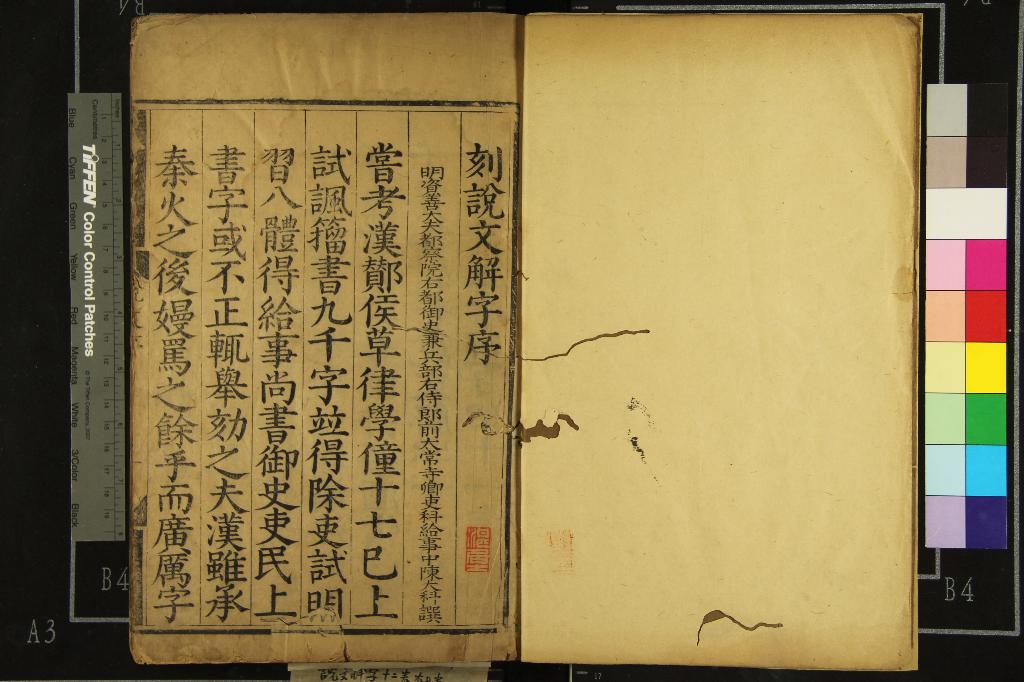 刻說文解字序
明資善大夫都察院右都御史兼兵部右侍郎前太常寺卿吏科給事中陳大科譔
嘗考漢酇侯草律學僮十七已上
試諷籀書九千字竝得除吏試明
習八體得給事尚書御史吏民上
書字或不正輒舉劾之夫漢雖承
秦火之後嫚罵之餘乎而廣厲字
Centimetres
Inches
TIFFEN Color Control Patches
Blue
Cyan
Green
Yellow
Red
Magenta
White
3/Color
Black
A3
B4
B4